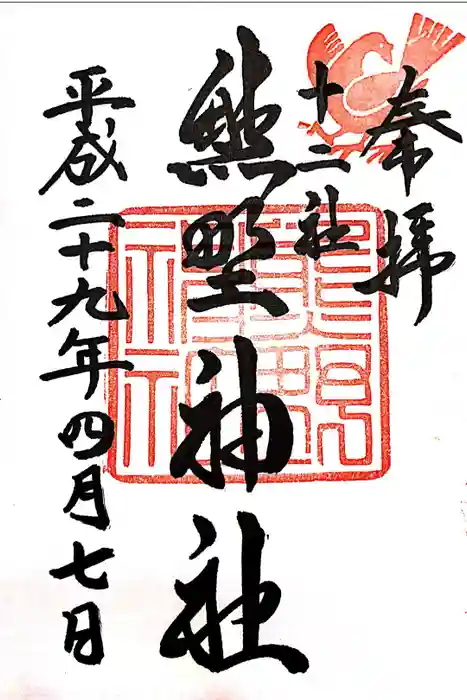 奉拝
十二社
熊野神社
平成二十九年四月七日
熊野
神社